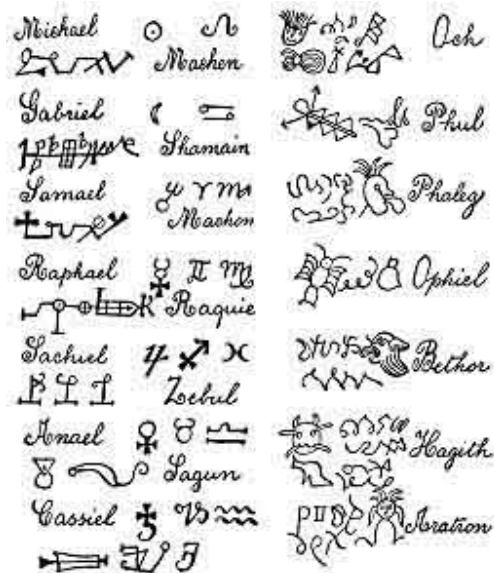 Michael ☉ ♌
Machen
Gabriel ☾ ♋
Shamain
Samael ♂ ♈ ♏
Machon
Raphael ☿ ♊ ♍
Raquie
Sachiel ♃ ♐ ♓
Zebul
Anael ♀ ♉ ♎
Sagun
Cassiel ♄ ♑ ♒
Och
Phul
Phaleg
Ophiel
Bethor
Hagith
Aratron